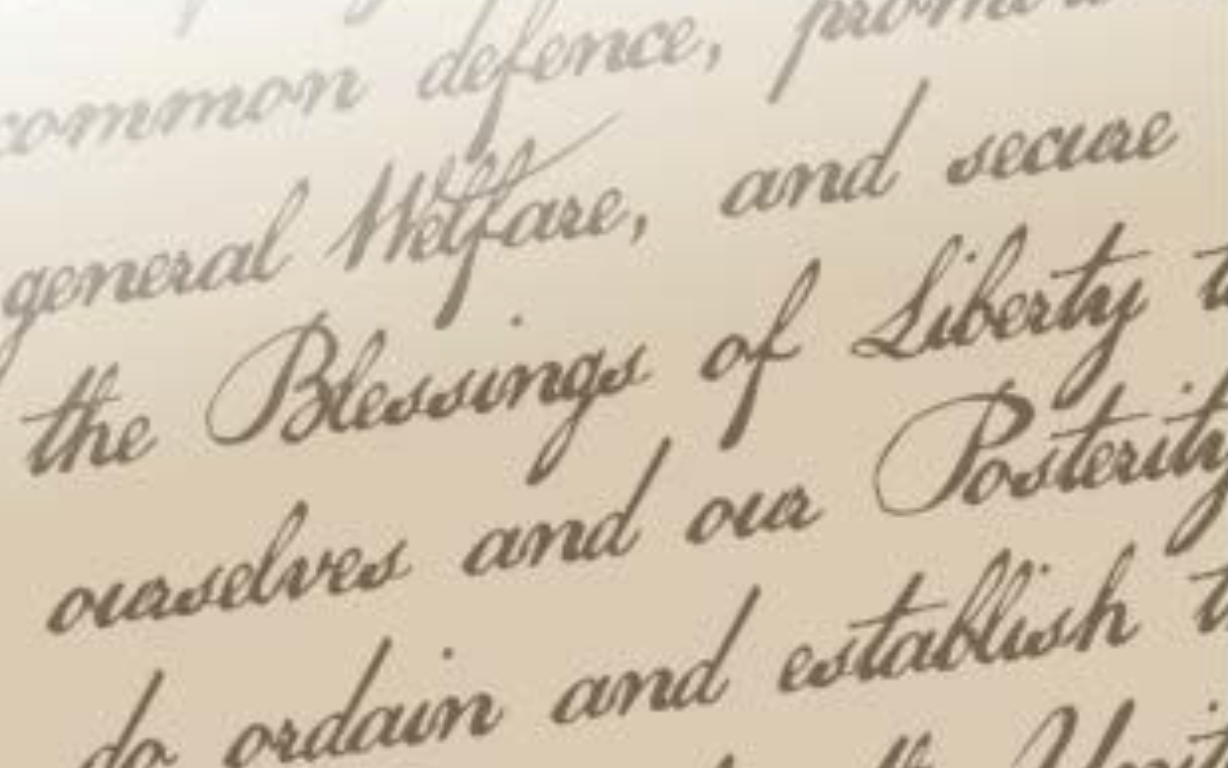 common defence, promote
general Welfare, and secure
the Blessings of Liberty t
ourselves and our Posterity
do ordain and establish t
the Unit